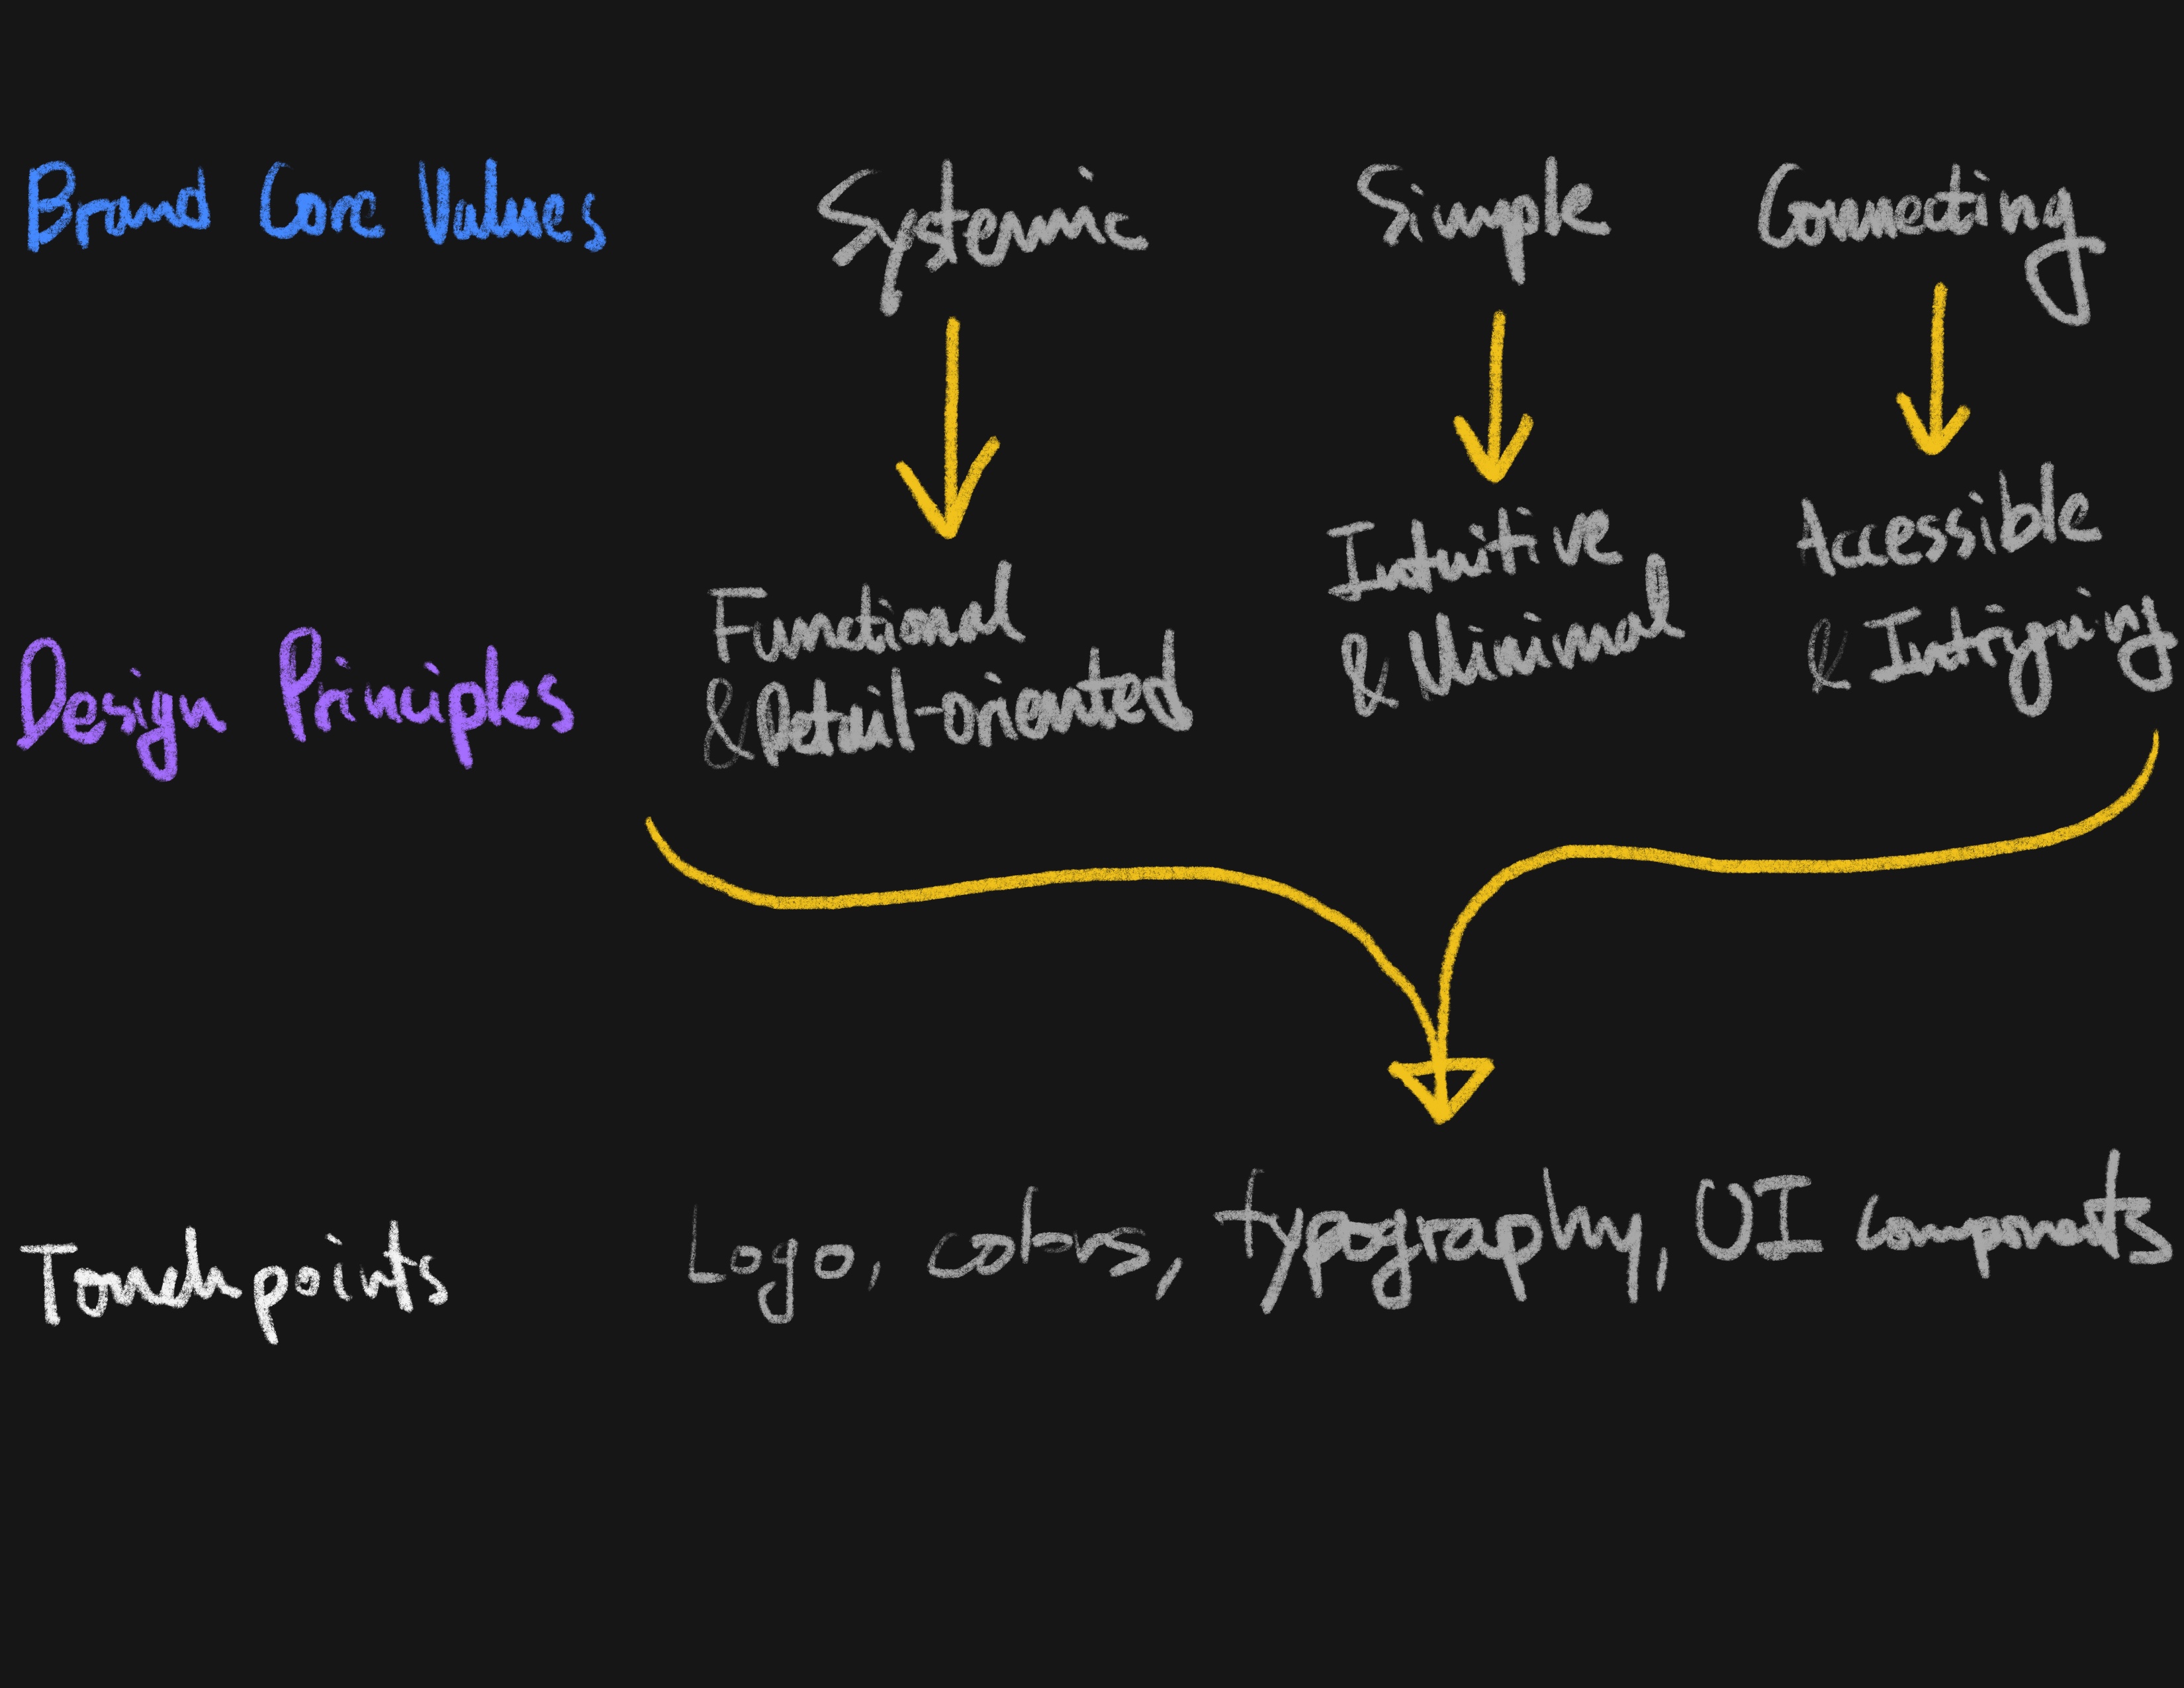 Brand Core Values Systemic Simple Connecting
Functional
& Detail-oriented
Intuitive
& Minimal
Accessible
& Intriguing
Design Principles
Touchpoints Logo, colors, typography, UI components